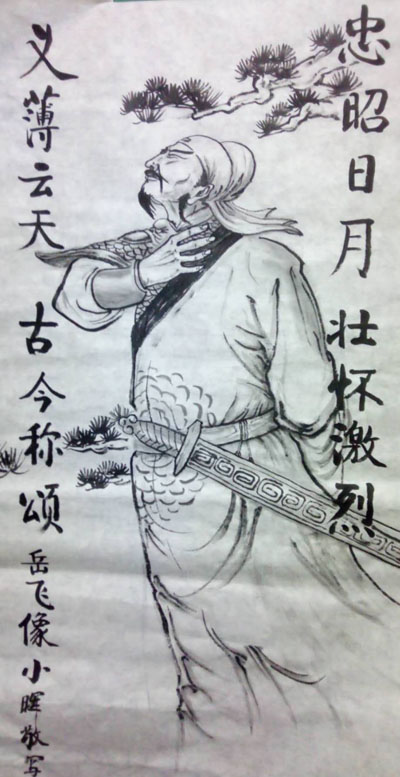 忠昭日月 壮怀激烈
义薄云天 古今称颂
岳飞像 小晖敬写